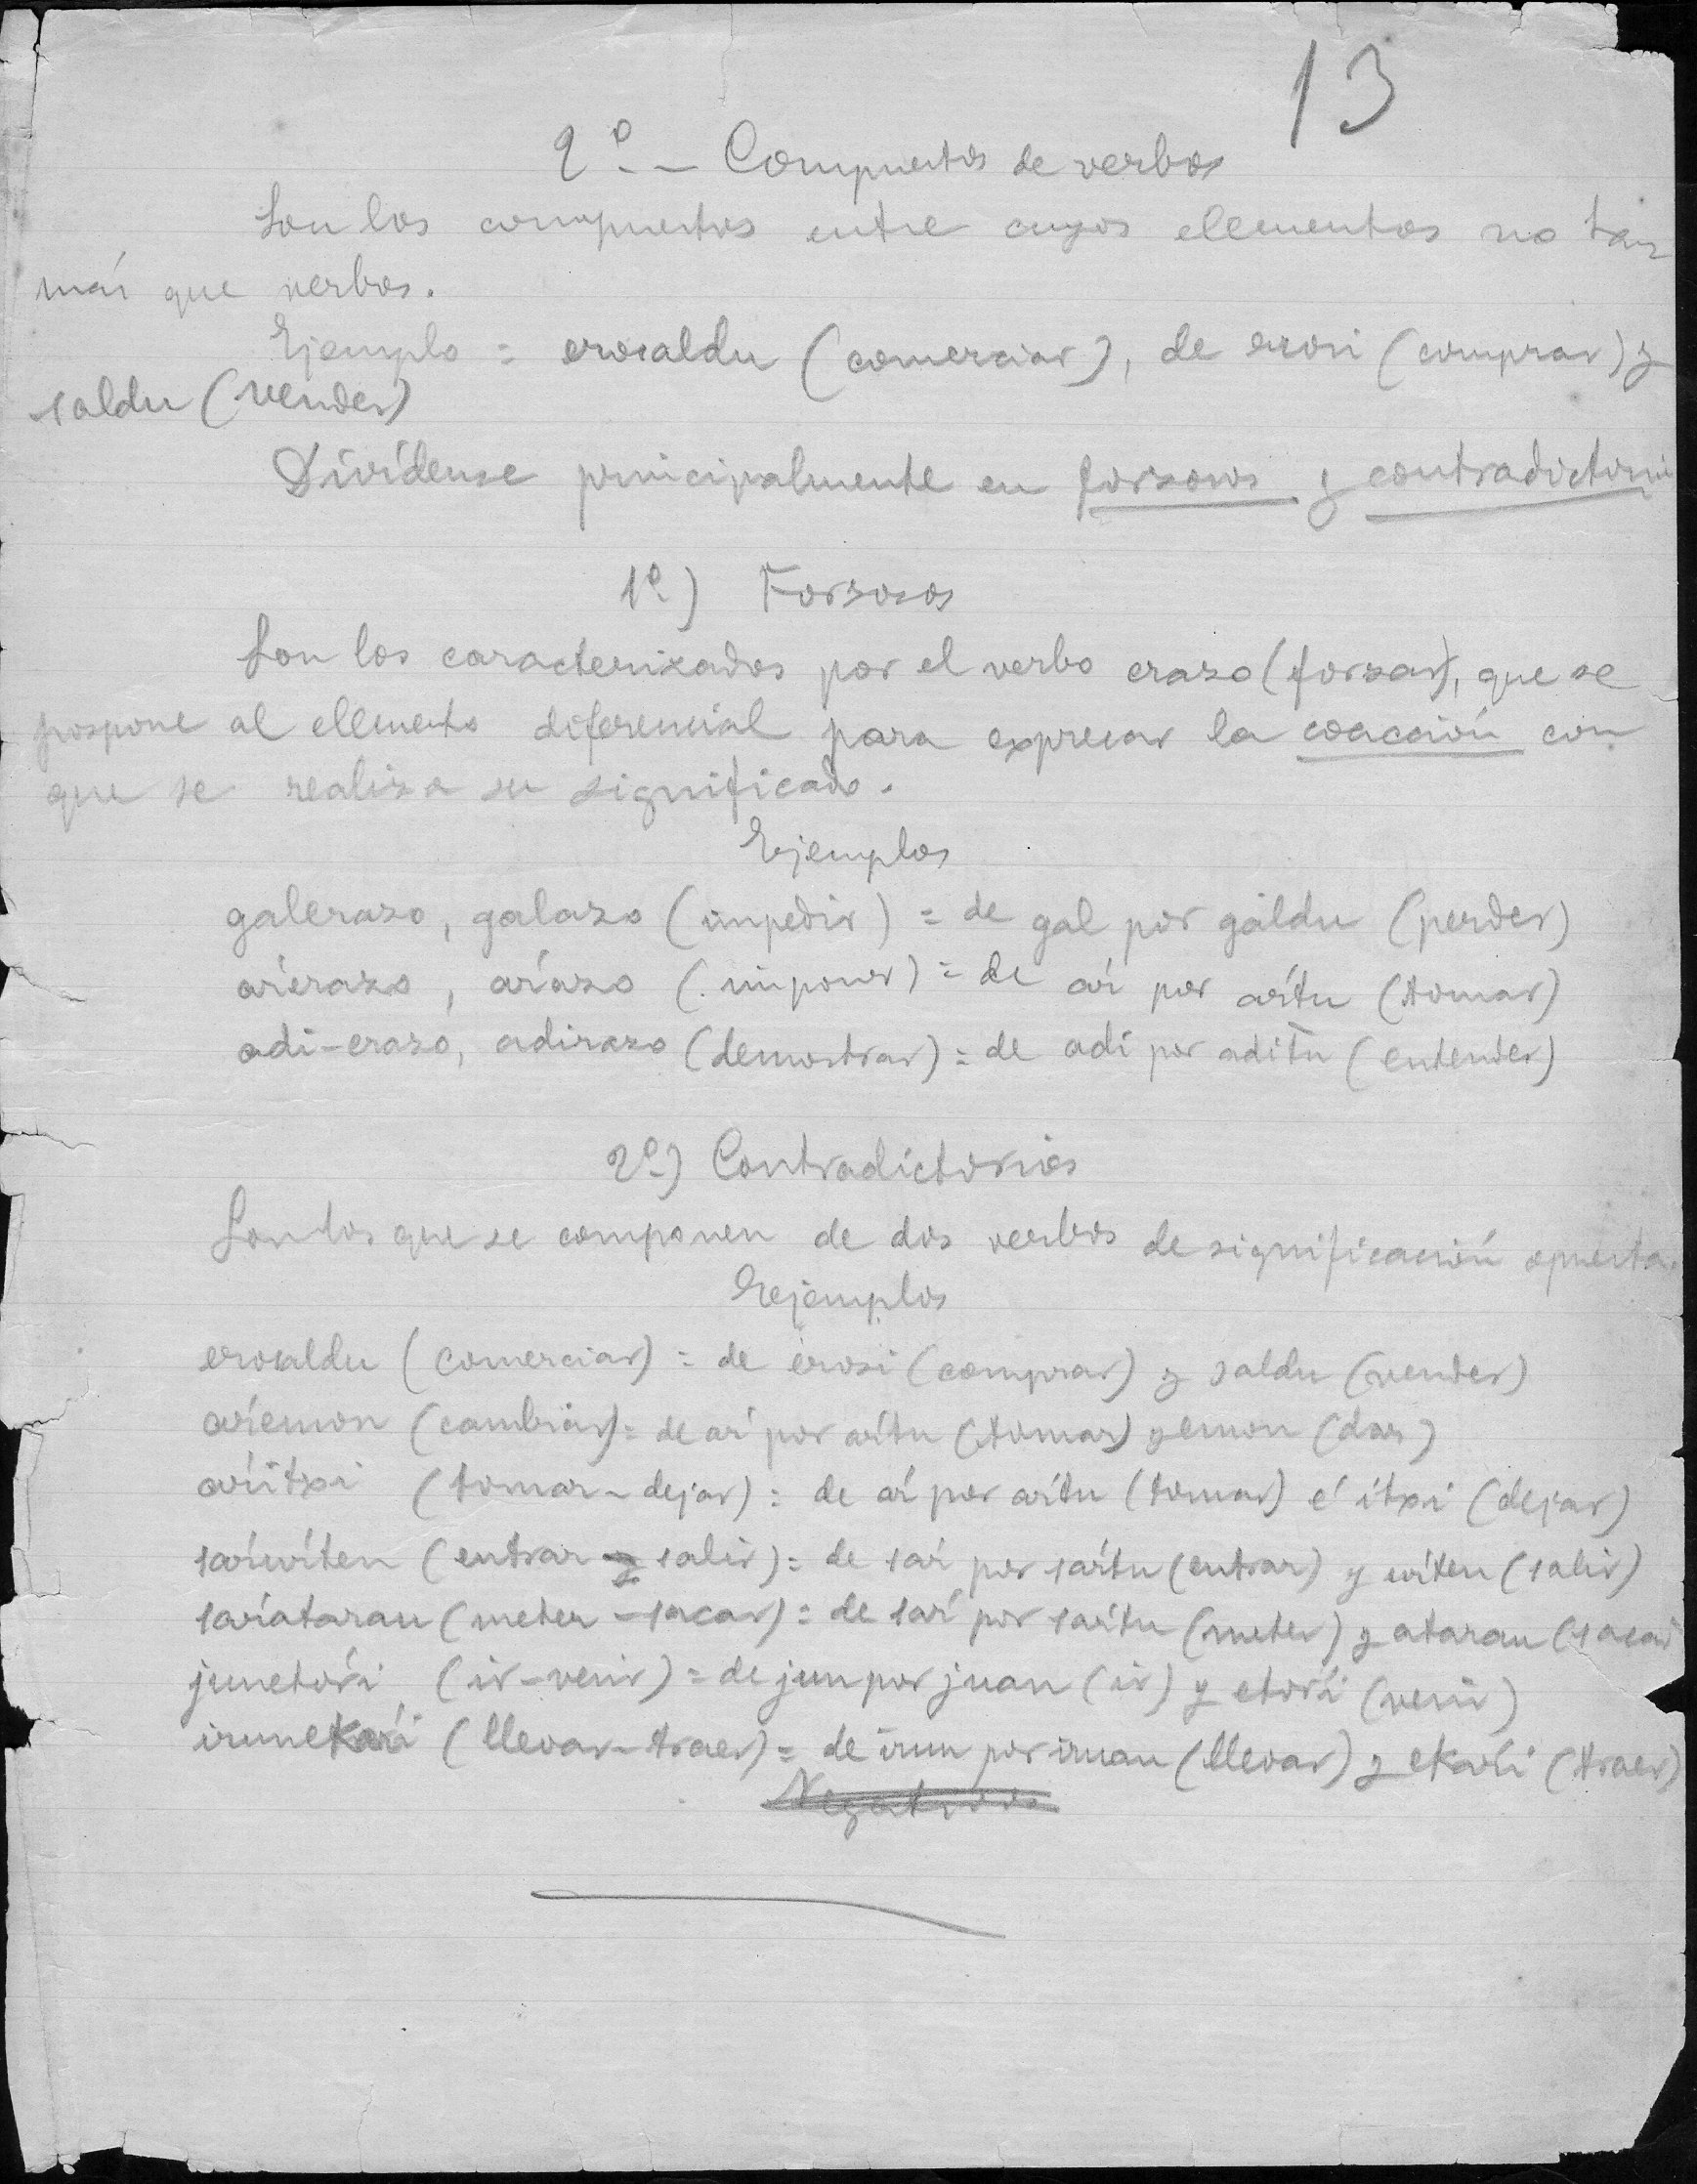 13
2º — Compuestos de verbos
Son los compuestos entre cuyos elementos no hay
más que verbos.
Ejemplo = erosaldu (comerciar), de erosi (comprar) y
saldu (vender)
Divídense principalmente en forzosos y contradictorios
1º) Forzosos
Son los caracterizados por el verbo erazo (forzar), que se
pospone al elemento diferencial para expresar la coacción con
que se realiza su significado.
Ejemplos
galerazo, galazo (impedir) = de gal por galdu (perder)
aŕerazo, aŕazo (imponer) = de aŕ por aŕtu (tomar)
adi-erazo, adirazo (demostrar) = de adi por aditu (entender)
2º) Contradictorios
Son los que se componen de dos verbos de significación opuesta.
Ejemplos
erosaldu (comerciar) = de erosi (comprar) y saldu (vender)
aŕemon (cambiar) = de aŕ por aŕtu (tomar) y emon (dar)
aŕitxi (tomar-dejar) = de aŕ por aŕtu (tomar) é itxi (dejar)
saŕuŕten (entrar y salir) = de saŕ por saŕtu (entrar) y uŕten (salir)
saŕataran (meter-sacar) = de saŕ por saŕtu (meter) y ataran (sacar
junetoŕi (ir-venir) = de jun por juan (ir) y etoŕi (venir)
irunekaŕi (llevar-traer) = de irun por iruan (llevar) y ekaŕi (traer)
Negativos